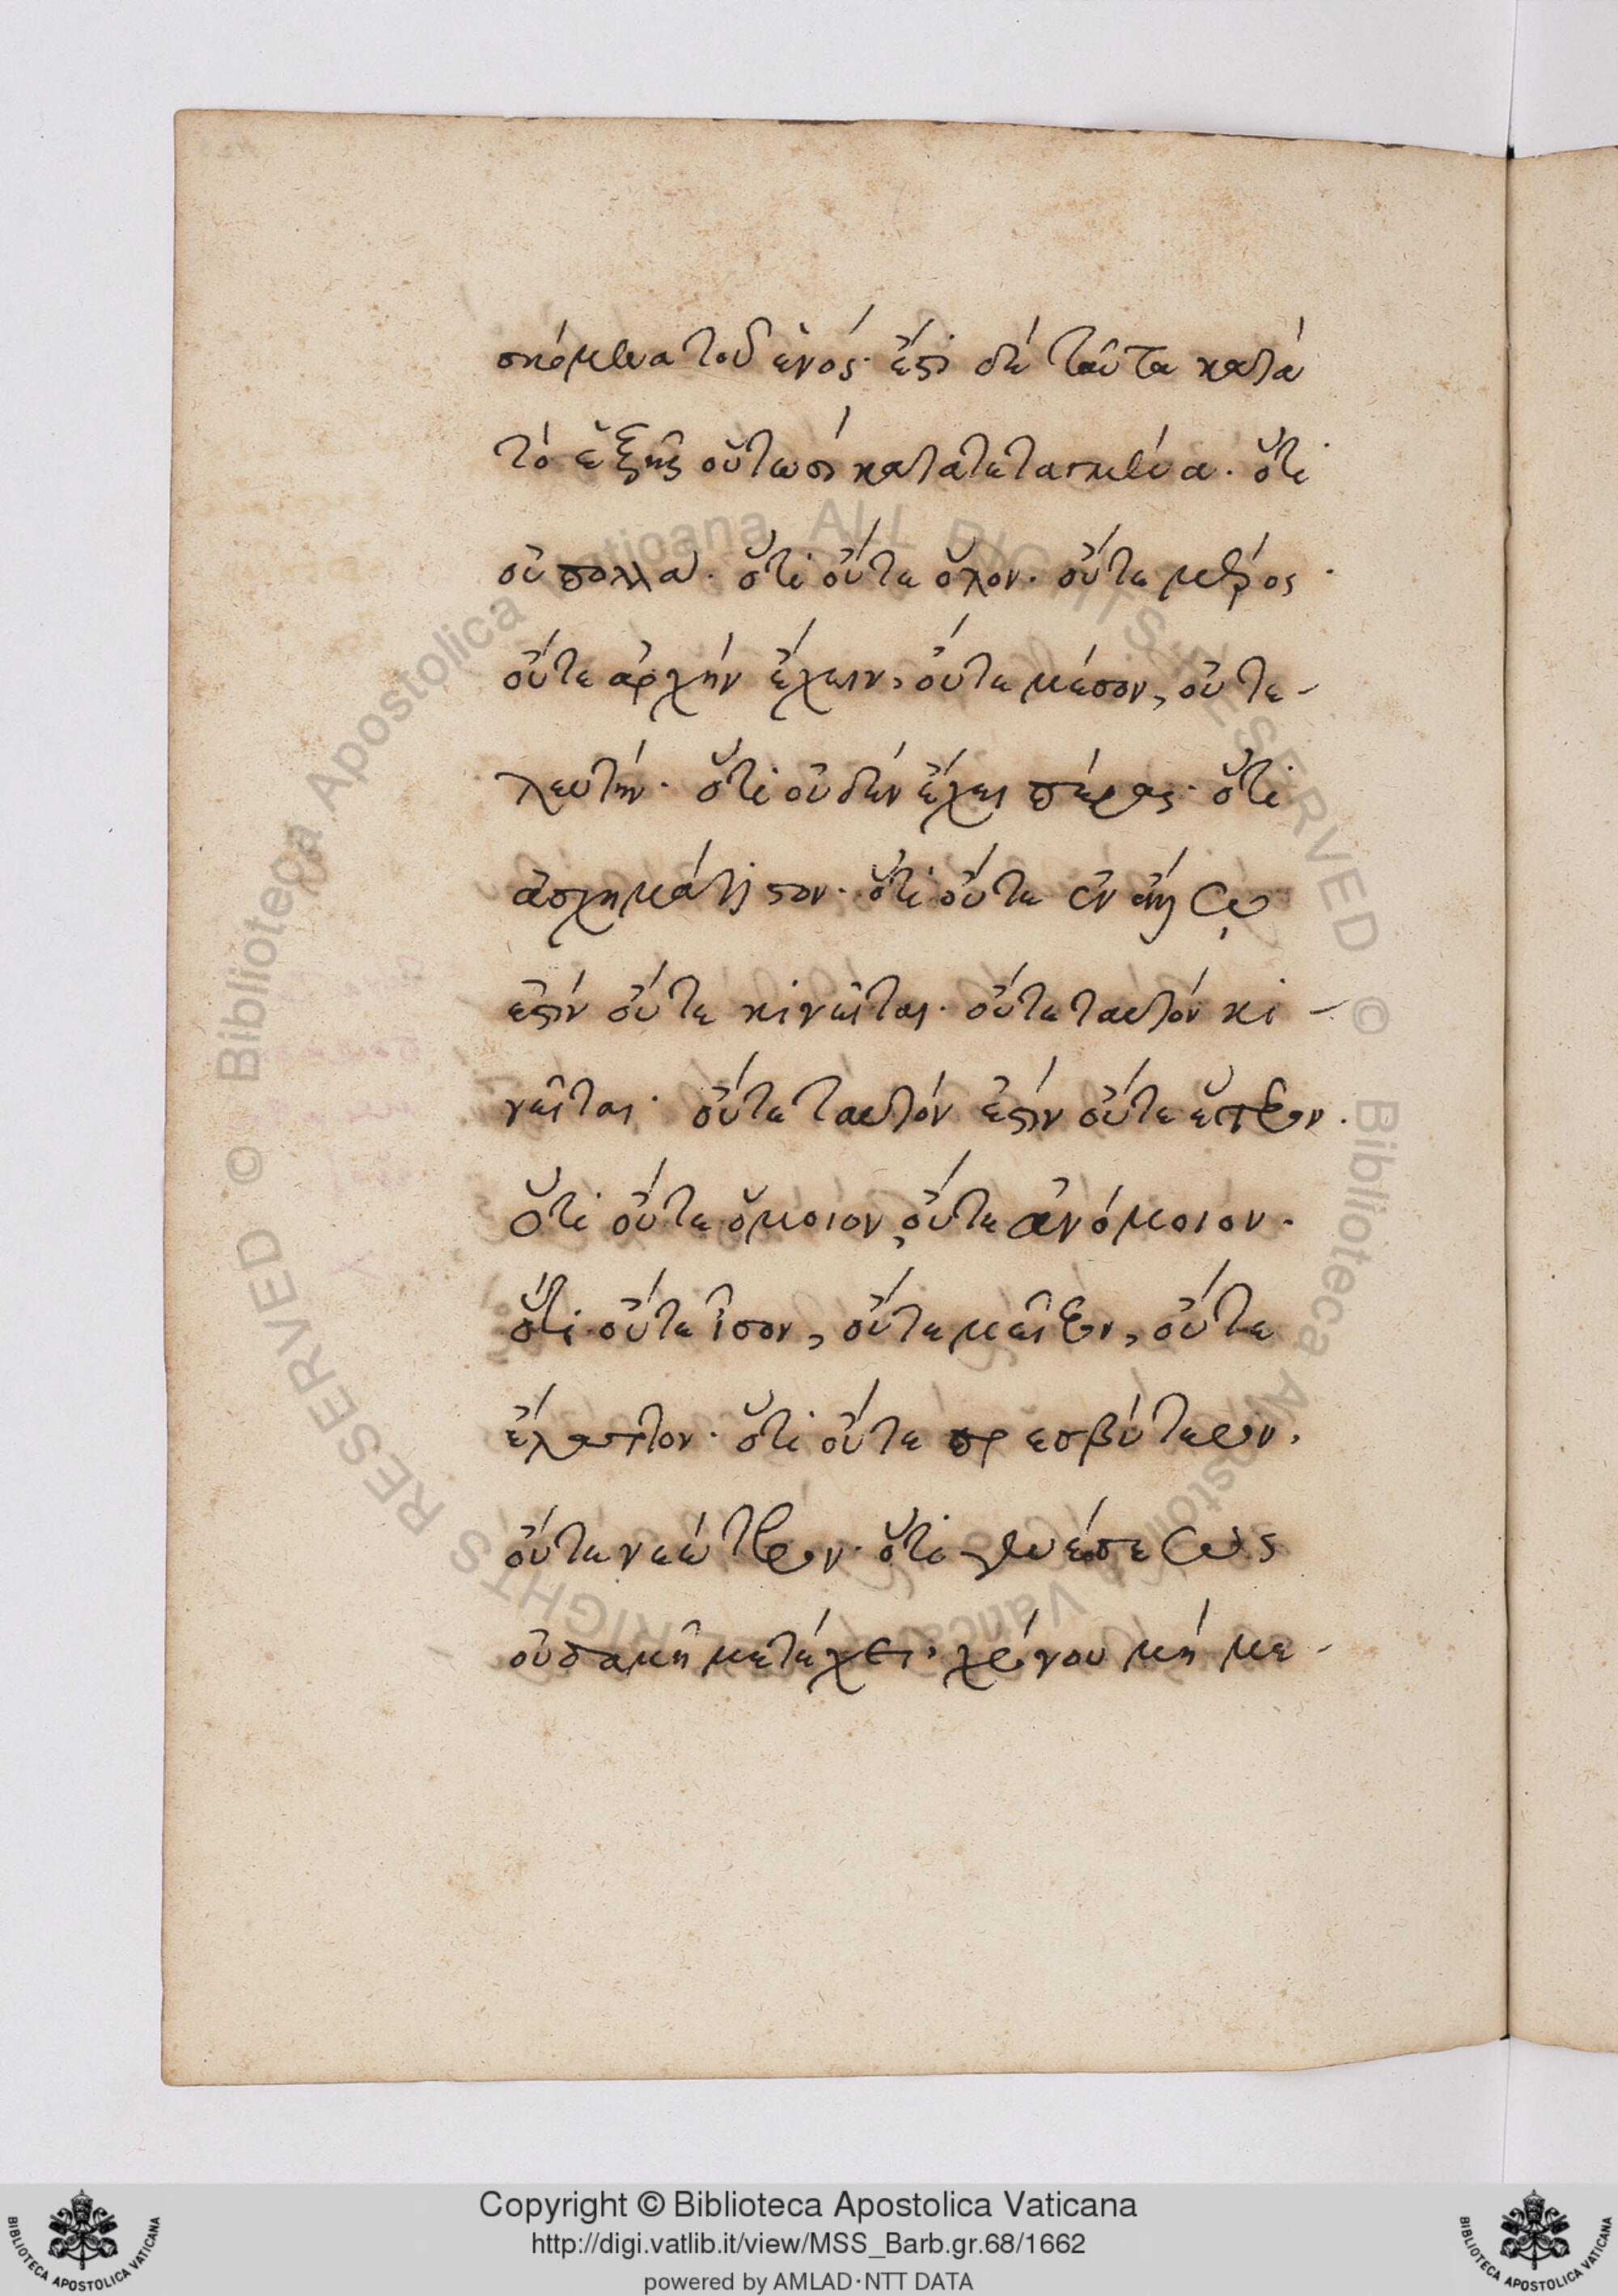 σκόμενα τοῦ ἑνός· ἔστι δὲ ταῦτα κατὰ
τὸ ἑξῆς οὕτωσὶ κατατεταγμένα. ὅτι
οὐ πολλά. ὅτι οὔτε ὅλον. οὔτε μέρος.
οὔτε ἀρχὴν ἔχειν, οὔτε μέσον, οὔ τε-
λευτήν· ὅτι οὐδὲν ἔχει πέρας· ὅτι
ἀσχημάτιστον· ὅτι οὔτε ἐν
ἐστὶν οὔτε κινεῖται· οὔτε ταυτόν κι-
νεῖται· οὔτε ταυτόν ἐστὶν οὔτε ἕτερον.
ὅτι οὔτε ὅμοιον, οὔτε ἀνόμοιον.
ὅτι οὔτε ἴσον, οὔτε μεῖζον, οὔτε
ἔλαττον· ὅτι οὔτε πρεσβύτερον,
οὔτε νεώτερον· ὅτι γενέσεως
οὐδαμῆ μετέχει, χρόνου μὴ με-
Copyright © Biblioteca Apostolica Vaticana
http://digi.vatlib.it/view/MSS_Barb.gr.68/1662
powered by AMLAD·NTT DATA
BIBLIOTECA APOSTOLICA VATICANA
BIBLIOTECA APOSTOLICA VATICANA
© Biblioteca Apostolica Vaticana ALL RIGHTS RESERVED
© Biblioteca Apostolica Vaticana ALL RIGHTS RESERVED